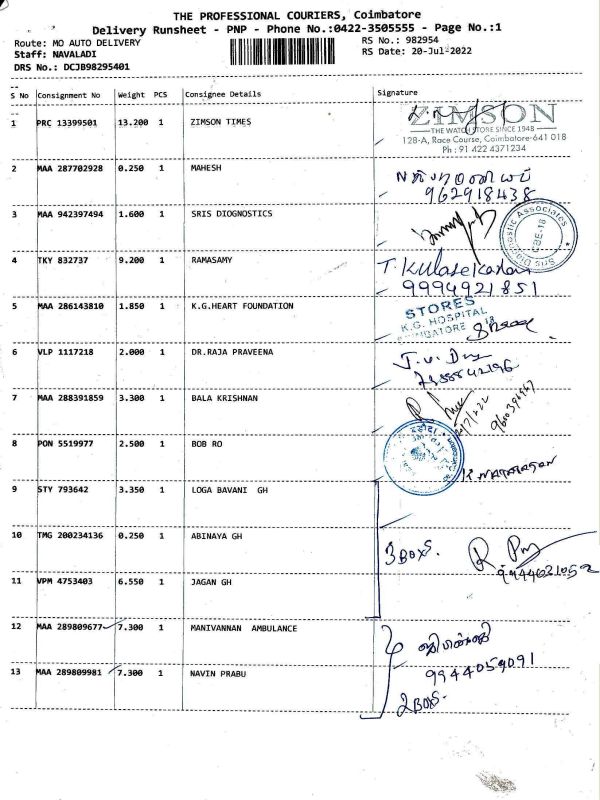 THE PROFESSIONAL COURIERS, Coimbatore
Delivery Runsheet - PNP - Phone No.:0422-3505555 - Page No.:1
Route: MO AUTO DELIVERY
RS No.: 982954
Staff: NAVALADI
RS Date: 20-Jul-2022
DRS No.: DCJB98295401
S No Consignment No Weight PCS Consignee Details Signature
1 PRC 13399501 13.200 1 ZIMSON TIMES
ZIMSON
THE WATCH STORE SINCE 1948
128-A, Race Course, Coimbatore-641 018
Ph : 91 422 4371234
2 MAA 287702928 0.250 1 MAHESH
962918438
3 MAA 942397494 1.600 1 SRIS DIOGNOSTICS
Sris Diagnostic Associates
CBE-18
4 TKY 832737 9.200 1 RAMASAMY
T. Kulasekaran
9994921851
5 MAA 286143810 1.850 1 K.G.HEART FOUNDATION
STORES
K.G. HOSPITAL
COIMBATORE 18
6 VLP 1117218 2.000 1 DR.RAJA PRAVEENA
7 MAA 288391859 3.300 1 BALA KRISHNAN
8 PON 5519977 2.500 1 BOB RO
9 STY 793642 3.350 1 LOGA BAVANI GH
10 TMG 200234136 0.250 1 ABINAYA GH
3 BOXS.
11 VPM 4753403 6.550 1 JAGAN GH
12 MAA 289809677 7.300 1 MANIVANNAN AMBULANCE
9944059091
13 MAA 289809981 7.300 1 NAVIN PRABU
2 BOXS.